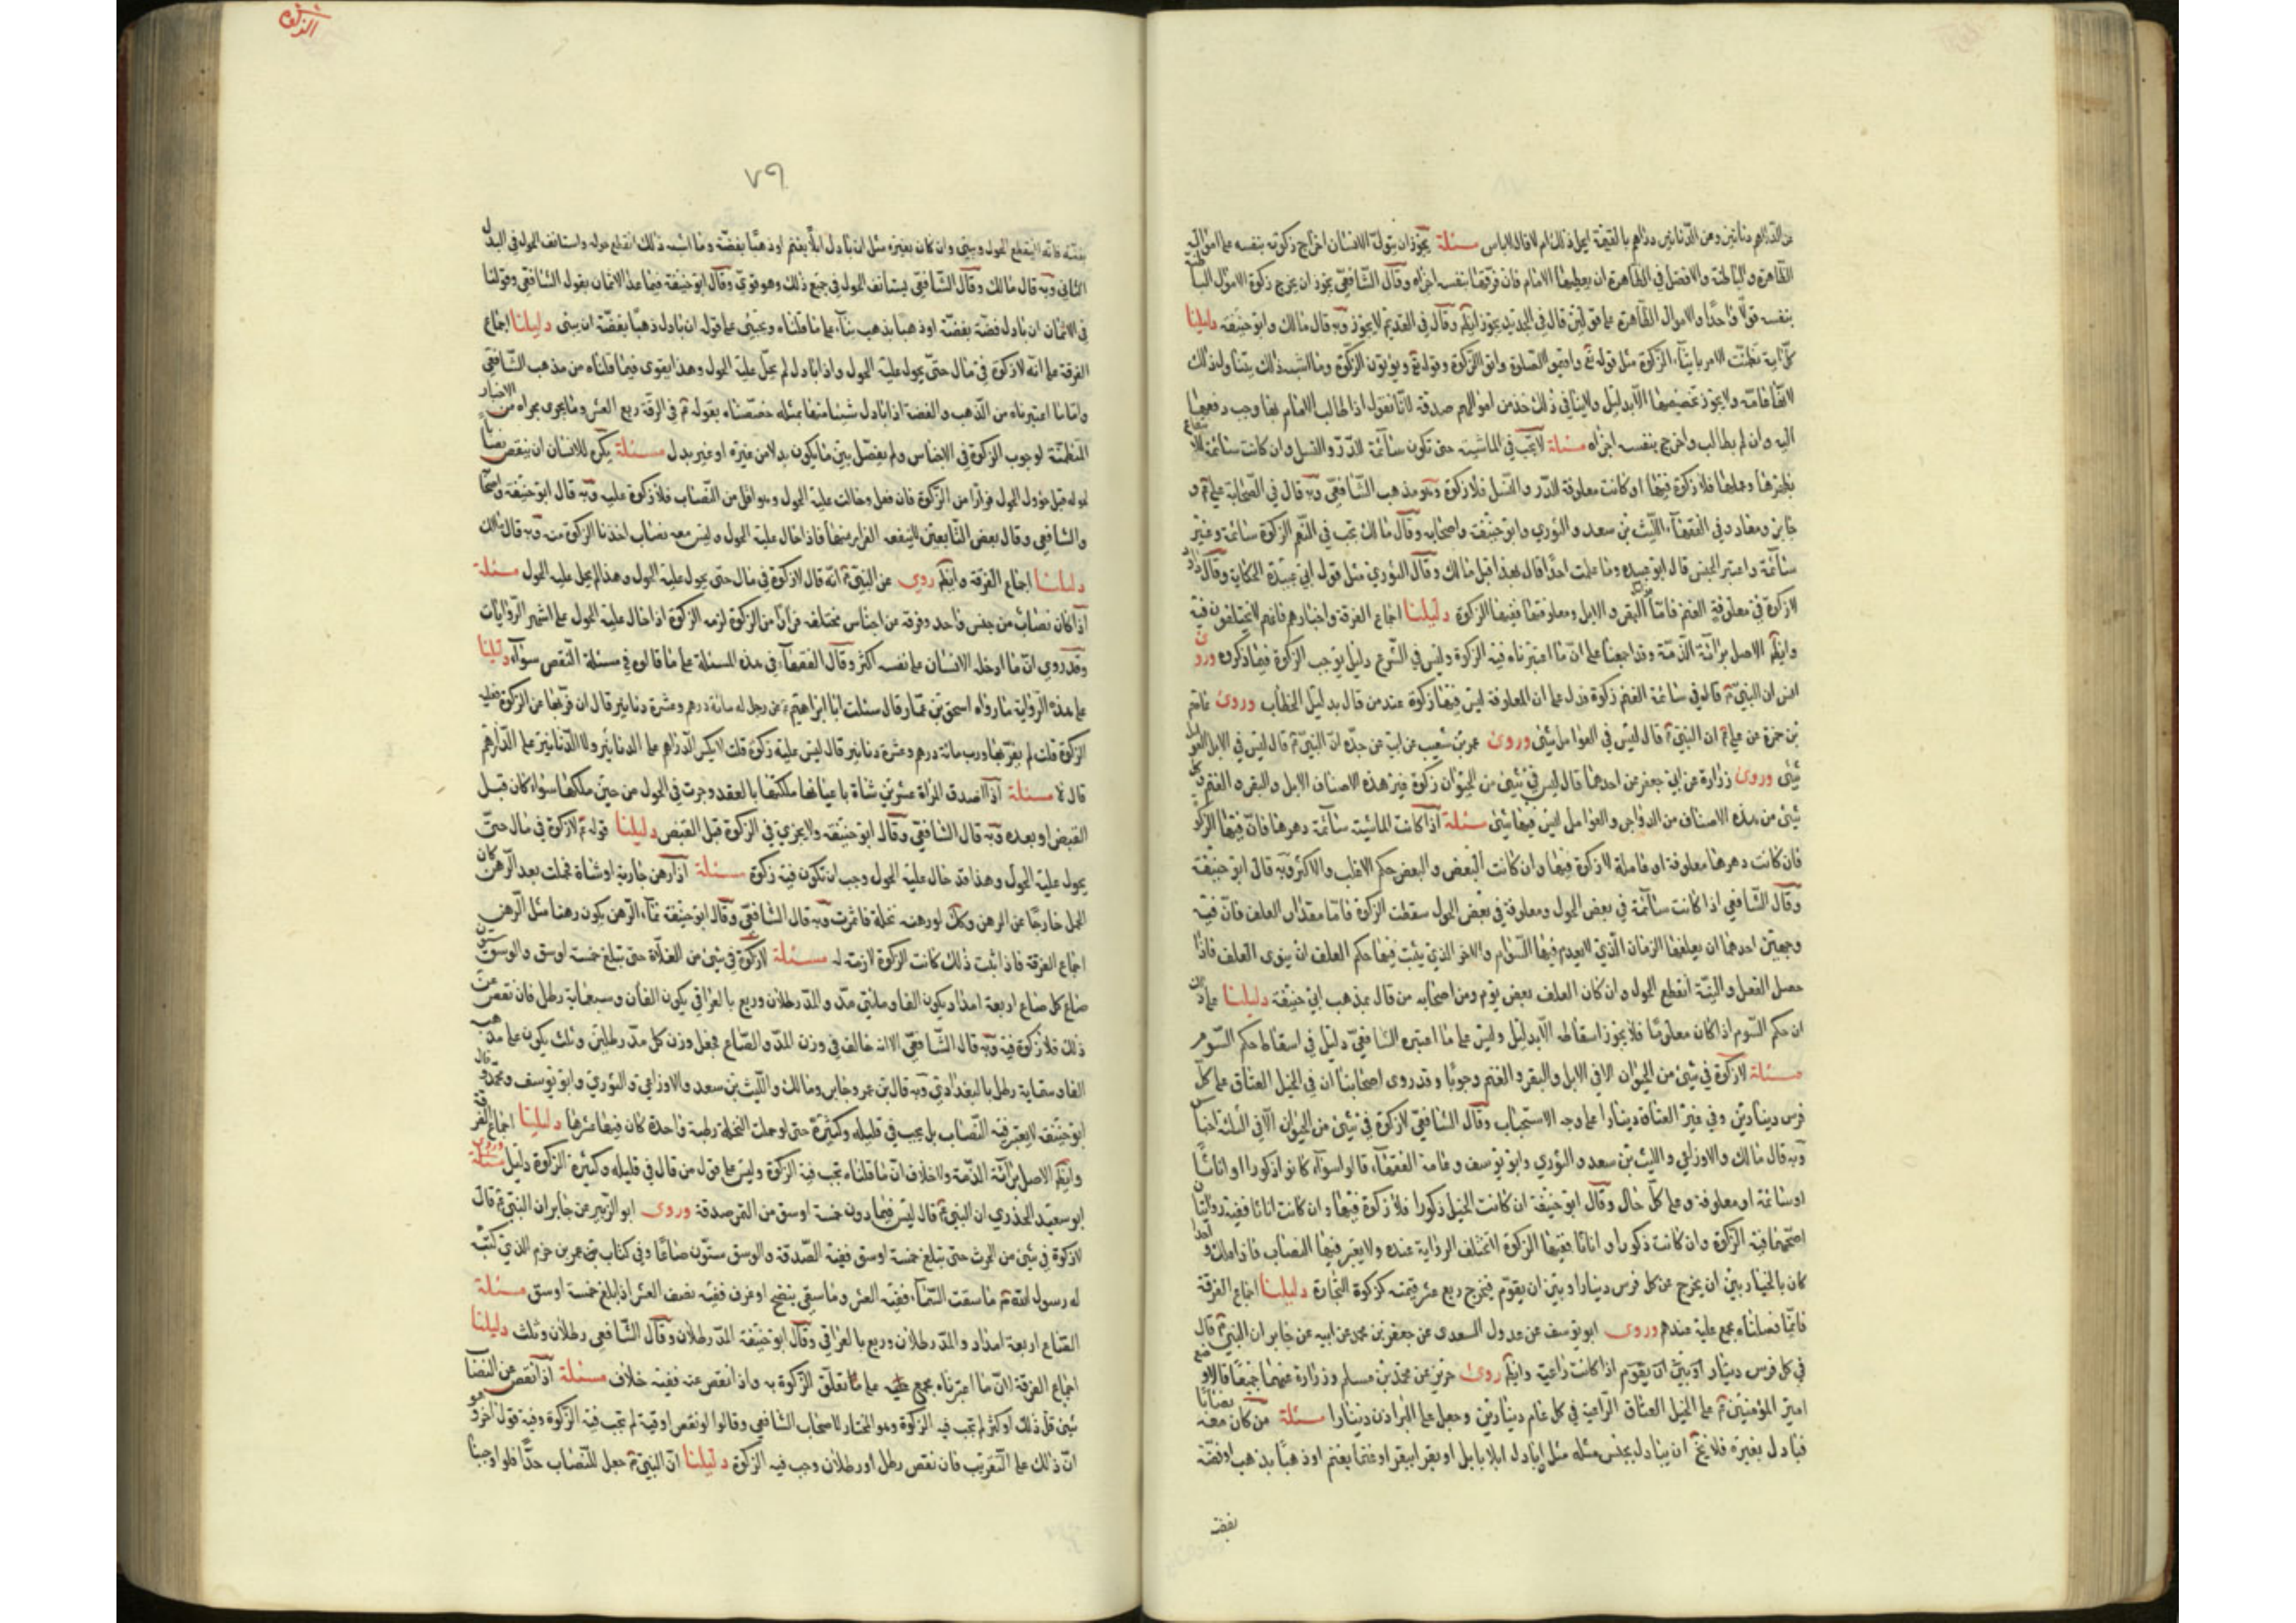 من الدراهم دنانير ومن الدنانير دراهم بالقيمة ايحل ذلك ام لا قال لاباس مسئلة يجوز ان يتولى الانسان اخراج زكوته بنفسه على امواله
الظاهرة والباطنة والافضل في الظاهرة ان يعطيها الامام فان فرقها بنفسه اجزاه وقال الشافعي يجوز ان يخرج زكوة الاموال الباطنة
بنفسه قولا واحدا والاموال الظاهرة على قولين قال في الجديد يجوز ايضا وقال في القديم لا يجوز وبه قال مالك وابو حنيفة دليلنا
كل اية تضمنت الامر بايتاء الزكوة مثل قوله تع واقيموا الصلوة واتوا الزكوة وقوله تع ويؤتون الزكوة وما اشبه ذلك يتناول ذلك
لانها عامة ولا يجوز تخصيصها الا بدليل ولاينافي ذلك خذ من اموالهم صدقة لانا نقول اذا طالب الامام بها وجب دفعها
اليه وان لم يطالب واخرج بنفسه اجزاه مسئلة لا تجب في الماشية حتى تكون سائمة للدر والنسل وان كانت سائمة للانتفاع
بظهرها وعملها فلا زكوة فيها او كانت معلوفة للدر والنسل فلا زكوة وهو مذهب الشافعي وبه قال في الصحابة علي ع و
جابر ومعاذ وفي الفقهاء الليث بن سعد والثوري وابو حنيفة واصحابه وقال مالك تجب في النعم الزكوة سائمة وغير
سائمة واعتبر الجنس قال ابو عبيده وما علمت احدا قال بهذا قبل مالك وقال الثوري مثل قول ابي عبيدة الحكاية وقال داود
لا زكوة في معلوفة الغنم فاما البقر والابل ومعلوفتها ففيها الزكوة دليلنا اجماع الفرقة واخبارهم فانهم لا يختلفون فيه
وايضا الاصل برائة الذمة وقد اجمعنا على ان ما اعتبرناه فيه الزكوة وليس في الشرع دليل يوجب الزكوة فيما ذكروه وروى
انس ان النبي ص قال في سائمة الغنم زكوة فدل على ان المعلوفة ليس فيها زكوة عند من قال بدليل الخطاب وروى عاصم
بن حمزة عن علي ع ان النبي ص قال ليس في العوامل شئ وروى عمر بن شعيب عن ابيه عن جده ان النبي ص قال ليس في الابل العوامل
شئ وروى زرارة عن ابي جعفر عن احدهما قال ليس في شئ من الحيوان زكوة غير هذه الاصناف الابل والبقر والغنم وكل
شئ من هذه الاصناف من الدواجن والعوامل ليس فيها شئ مسئلة اذا كانت الماشية سائمة دهرها فان فيها الزكوة
فان كانت دهرها معلوفة او عاملة لا زكوة فيها وان كانت البعض والبعض حكم الاغلب والاكثر وبه قال ابو حنيفة
وقال الشافعي اذا كانت سائمة في بعض الحول ومعلوفة في بعض الحول سقطت الزكوة فاما مقدار العلف فان فيه
وجهين احدهما ان يعلفها الزمان الذي لا يعدم فيها السوام والاخر الذي يثبت فيها حكم العلف ان ينوي العلف فاذا
حصل الفعل والنية انقطع الحول وان كان العلف بعض يوم ومن اصحابه من قال بمذهب ابي حنيفة دليلنا على ذلك
ان حكم السوم اذا كان معلوما فلا يجوز اسقاطه الا بدليل وليس على ما اعتبره الشافعي دليل في اسقاط حكم السوم
مسئلة لا زكوة في شئ من الحيوان الا في الابل والبقر والغنم وجوبا وقد روى اصحابنا ان في الخيل العتاق على كل
فرس دينارين وفي غير العتاق دينارا على وجه الاستحباب وقال الشافعي لا زكوة في شئ من الحيوان الا في الثلثة اجناس
وبه قال مالك والاوزاعي والليث بن سعد والثوري وابو يوسف وعامة الفقهاء قالوا سواء كانوا ذكورا او اناثا
او سائمة او معلوفة وعلى كل حال وقال ابو حنيفة ان كانت الخيل ذكورا فلا زكوة فيها وان كانت اناثا ففيه روايتان
اصحهما فيه الزكوة وان كانت ذكورا او اناثا ففيها الزكوة لا تختلف الرواية عنده ولا يعتبر فيها النصاب فاذا ملك واحدا
كان بالخيار بين ان يخرج عن كل فرس دينارا وبين ان يقوم فيخرج ربع عشر قيمته كزكوة التجارة دليلنا اجماع الفرقة
فانما فصلناه مجمع عليه عندهم وروى ابو يوسف عن غورك السعدى عن جعفر بن محمد عن ابيه عن جابر ان النبي ص قال
في كل فرس دينار او بين ان يقوم اذا كانت راعية وايضا روى حريز عن محمد بن مسلم وزرارة عنهما جميعا قالا وضع
امير المؤمنين ع على الخيل العتاق الراعية في كل عام دينارين وجعل على البراذن دينارا مسئلة من كان معه نصابا
فبادل بغيره فلا يخ ان يبادل بجنس مثله مثل ان بادل ابلا بابل او بقر ابقر او غنما بغنم او ذهبا بذهب او فضة
بفضة
الزكوة
٧٩
بفضة فانه لا ينقطع الحول ويبني وان كان بغيره مثل ان بادل ابلا بغنم او ذهبا بفضة وما اشبه ذلك انقطع حوله واستانف الحول في البدل
الثاني وبه قال مالك وقال الشافعي يستانف الحول في جميع ذلك وهو قوي وقال ابو حنيفة فيما عدا الاثمان بقول الشافعي وقولنا
في الاثمان ان بادل فضة بفضة او ذهبا بذهب بناء على ما قلناه ويجيئ على قوله ان بادل ذهبا بفضة ان يبني دليلنا اجماع
الفرقة على انه لا زكوة في مال حتى يحول عليه الحول واذا بادل لم يحل عليه الحول وهذا يقوى فيما قلناه من مذهب الشافعي
واما ما اعتبرناه من الذهب والفضة اذا بادل شيئا منها بمثله خصصناه بقوله ع في الرقة ربع العشر وما يجرى مجراه من الاخبار
المتضمنة لوجوب الزكوة في الاجناس ولم يفصل بين ما يكون بدلا من غيره او غير بدل مسئلة يكره للانسان ان ينقص نصاب
ماله قبل حؤول الحول فرارا من الزكوة فان فعل وحالت عليه الحول وهو اقل من النصاب فلا زكوة عليه وبه قال ابو حنيفة واصحابه
والشافعي وقال بعض التابعين لا ينفعه الفرار منها فاذا حال عليه الحول وليس معه نصاب اخذنا الزكوة منه وبه قال مالك
دليلنا اجماع الفرقة وايضا روى عن النبي ص انه قال لا زكوة في مال حتى يحول عليه الحول وهذا لم يحل عليه الحول مسئلة
اذا كان نصاب من جنس واحد وفرقه من اجناس مختلفه فرارا من الزكوة لزمه الزكوة اذا حال عليه الحول على اشهر الروايات
وقد روي ان ما ادخله الانسان على نفسه اكثر وقال الفقهاء في هذه المسئلة على ما قالوه في مسئلة النقص سواء دليلنا
على هذه الرواية ما رواه اسحق بن عمار قال سئلت ابا ابراهيم ع عن رجل له مائة درهم وعشرة دنانير قال ان فر بها من الزكوة فعليه
الزكوة قلت لم يفر بها ورث مائة درهم وعشرة دنانير قال ليس عليه زكوة قلت لا يكسر الدراهم على الدنانير ولا الدنانير على الدراهم
قال لا مسئلة اذا اصدق المراة عشرين شاة باعيانها ملكتها بالعقد وجرت في الحول من حين ملكتها سواء كان قبل
القبض او بعده وبه قال الشافعي وقال ابو حنيفة ولا يجزي في الزكوة قبل القبض دليلنا قوله ع لا زكوة في مال حتى
يحول عليه الحول وهذا قد حال عليه الحول وجب ان تكون فيه زكوة مسئلة اذا رهن جارية او شاة فحملت بعد الرهن كان
الحمل خارجا عن الرهن وكذلك لو رهنه نخلة فاثمرت وبه قال الشافعي وقال ابو حنيفة نماء الرهن يكون رهنا مثل الرهن
اجماع الفرقة فاذا ثبت ذلك كانت الزكوة لازمة له مسئلة لا زكوة في شئ من الغلاة حتى تبلغ خمسة اوسق والوسق ستون
صاع كل صاع اربعة امداد يكون الفا ومائتي مد والمد رطلان وربع بالعراقي يكون الفان وسبعماية رطل فان نقص عن
ذلك فلا زكوة فيه وبه قال الشافعي الا انه خالف في وزن المد والصاع فجعل وزن كل مد رطل وثلث يكون على مذهبه
الفا وستماية رطل بالبغدادي وبه قال بن عمر وجابر ومالك والليث بن سعد والاوزاعي والثوري وابو يوسف ومحمد وقال
ابو حنيفة لا يعتبر فيه النصاب بل يجب في قليله وكثيره حتى لو حملت النخلة رطبة واحدة كان فيها عشرها دليلنا اجماع الفرقة
وايضا الاصل برائة الذمة ولا خلاف ان ما قلناه تجب فيه الزكوة وليس على قول من قال في قليله وكثيره الزكوة دليل وروى
ابو سعيد الخذري ان النبي ص قال ليس فيما دون خمسة اوسق من التمر صدقة وروى ابو الزبير عن جابر ان النبي ص قال
لا زكوة في شئ من الحرث حتى تبلغ خمسة اوسق ففيه الصدقة والوسق ستون صاعا وفي كتاب بن عمر بن حزم الذي كتبه
له رسول الله ص ما سقت السماء ففيه العشر وما سقي بنضح او غرف ففيه نصف العشر اذا بلغ خمسة اوسق مسئلة
الصاع اربعة امداد والمد رطلان وربع بالعراقي وقال ابو حنيفة المد رطلان وقال الشافعي رطلان وثلث دليلنا
اجماع الفرقة ان ما اعتبرناه مجمع عليه على تعلق الزكوة به واذا نقص عنه ففيه خلاف مسئلة اذا نقص عن النصاب
شئ قل ذلك او كثر لم تجب فيه الزكوة وهو المختار لاصحاب الشافعي وقالوا لو نقص اوقية لم تجب فيه الزكوة وفيه قول اخر وهو
ان ذلك على التقريب فان نقص رطل او رطلان وجب فيه الزكوة دليلنا ان النبي ص جعل للنصاب حدا فلو اوجبنا